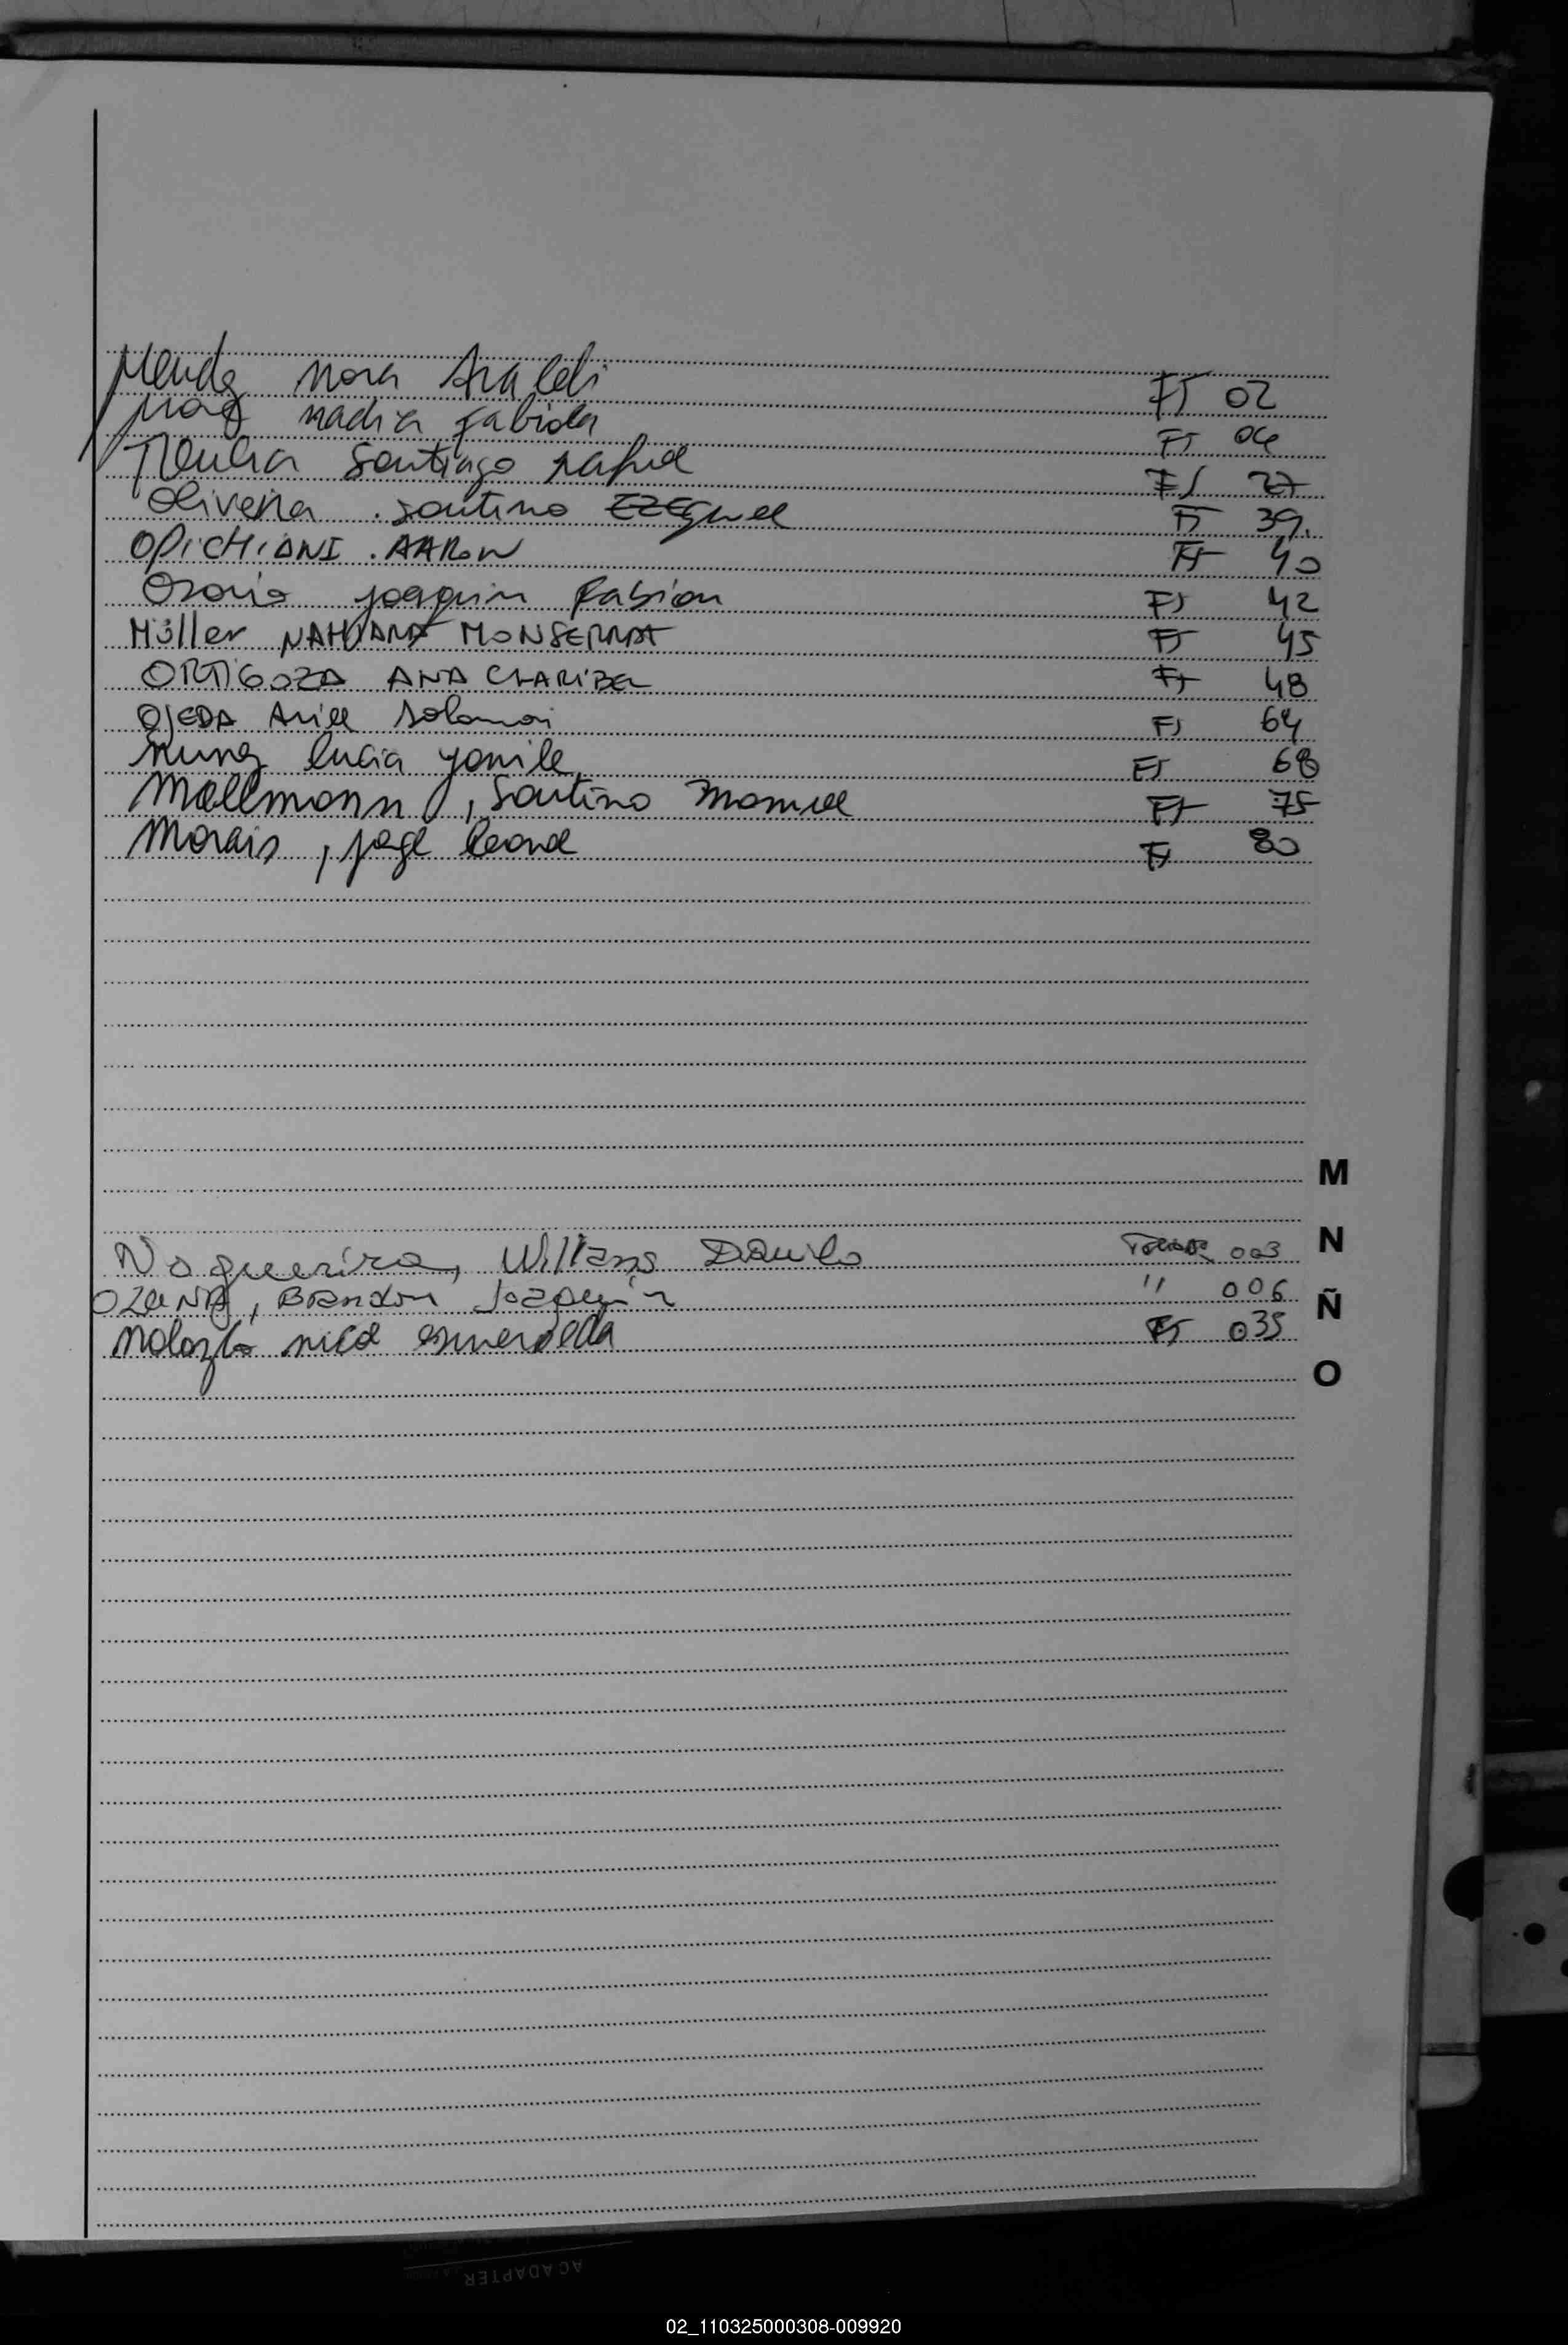 Mendez Nora Araceli FS 02
nadia fabiola FS 04
Santiago Rafael FS 27
Oliveira . Santino EZEQuiel FS 39.
OPiCHiANI . AARON FS 40
Osorio Joaquin Fabian FS 42
Müller NAHIARA MONSERRAT FS 45
ORTIGOZA ANA CLARIBEL FS 48
OJEDA Ariel Solomon FS 64
Nunez Lucia Yamile FS 68
Mallmann , Santino Manuel FS 75
Morais , Jorge Leonel FS 80
M
Nogueirira, Willians Danilo Folio 003
N
OZUNA, Brandon Joaquin '' 006
Ñ
esmeralda FS 035
O
AC ADAPTER
02_110325000308-009920